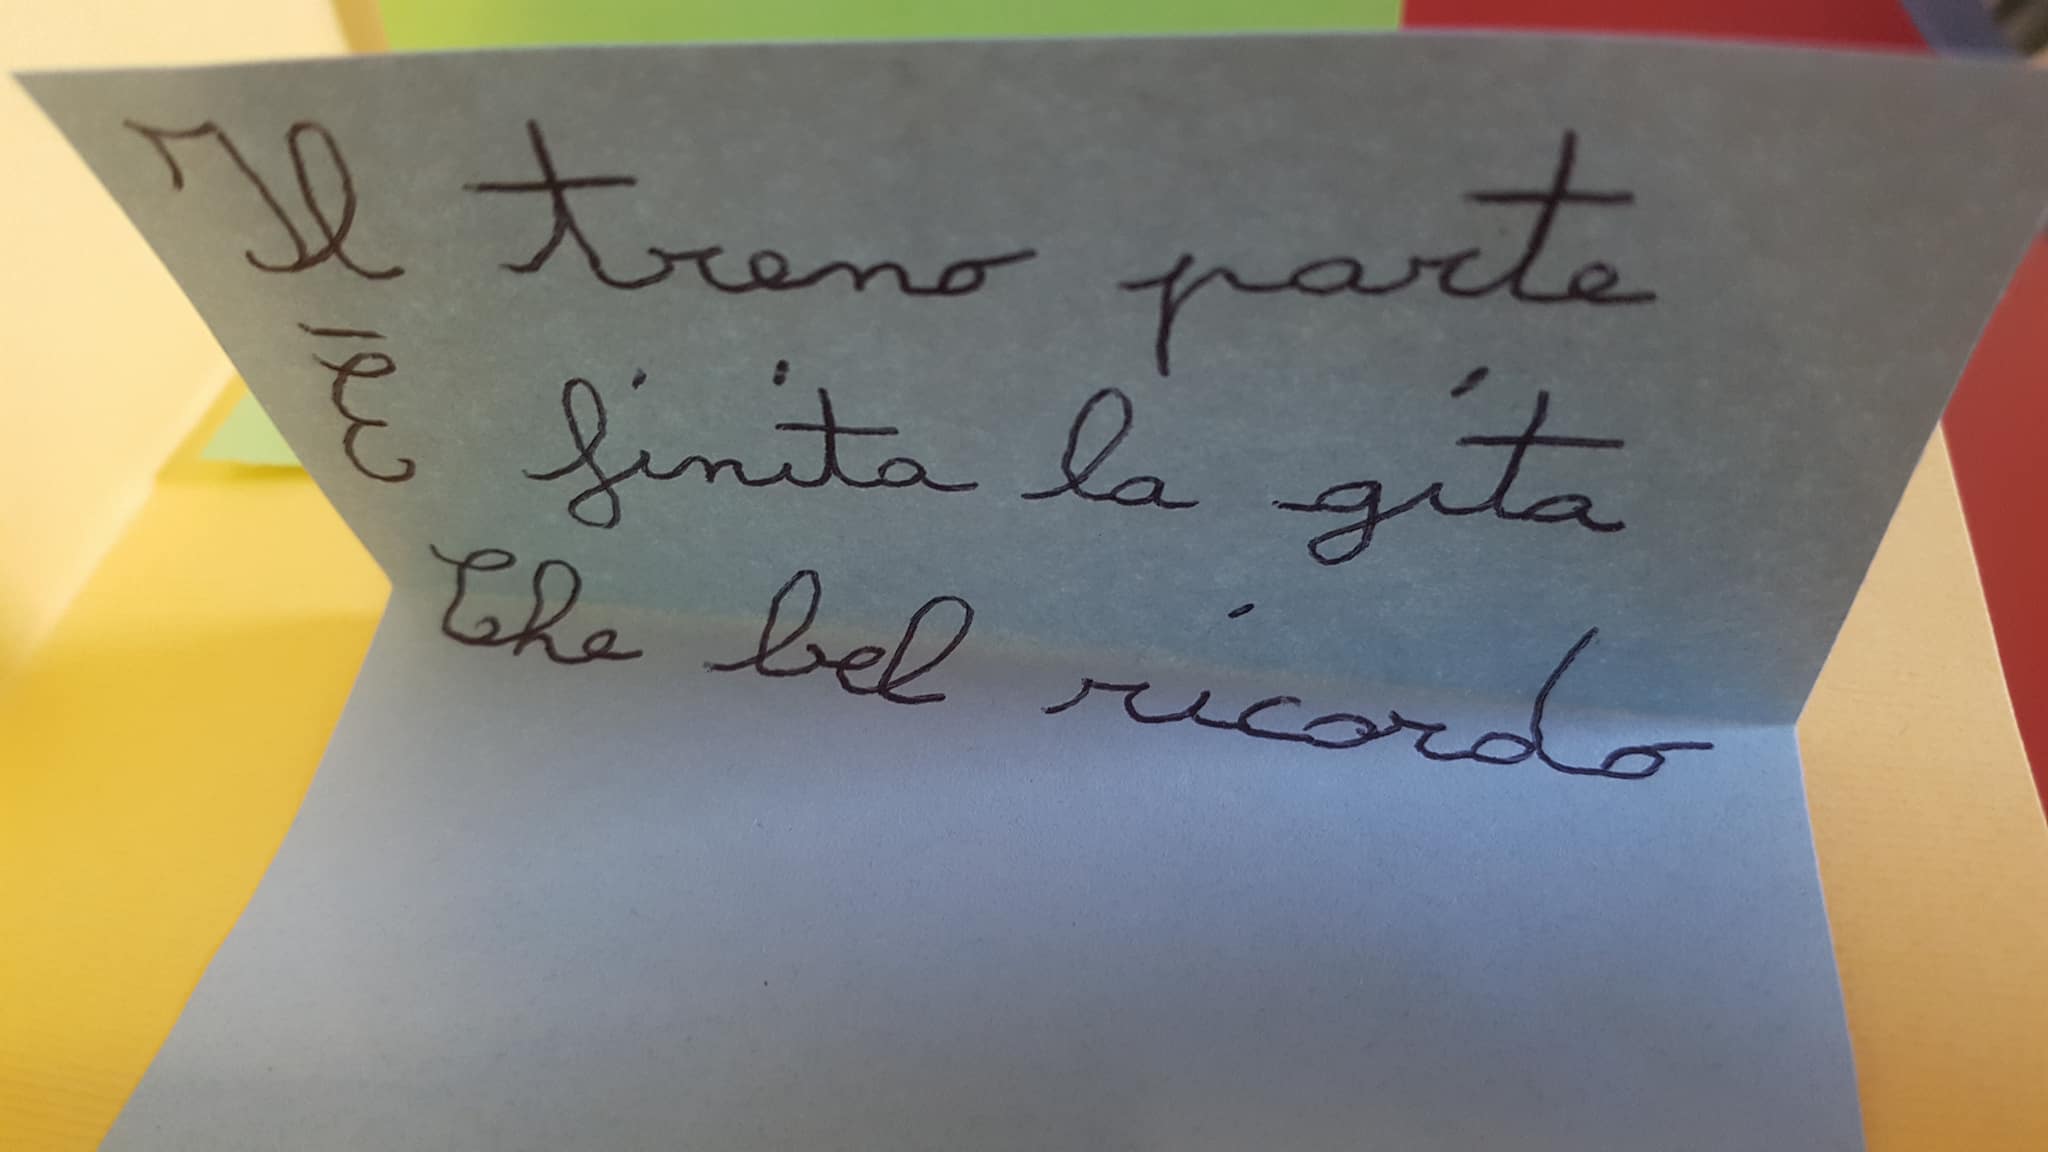 Il treno parte
È finita la gita
Che bel ricordo